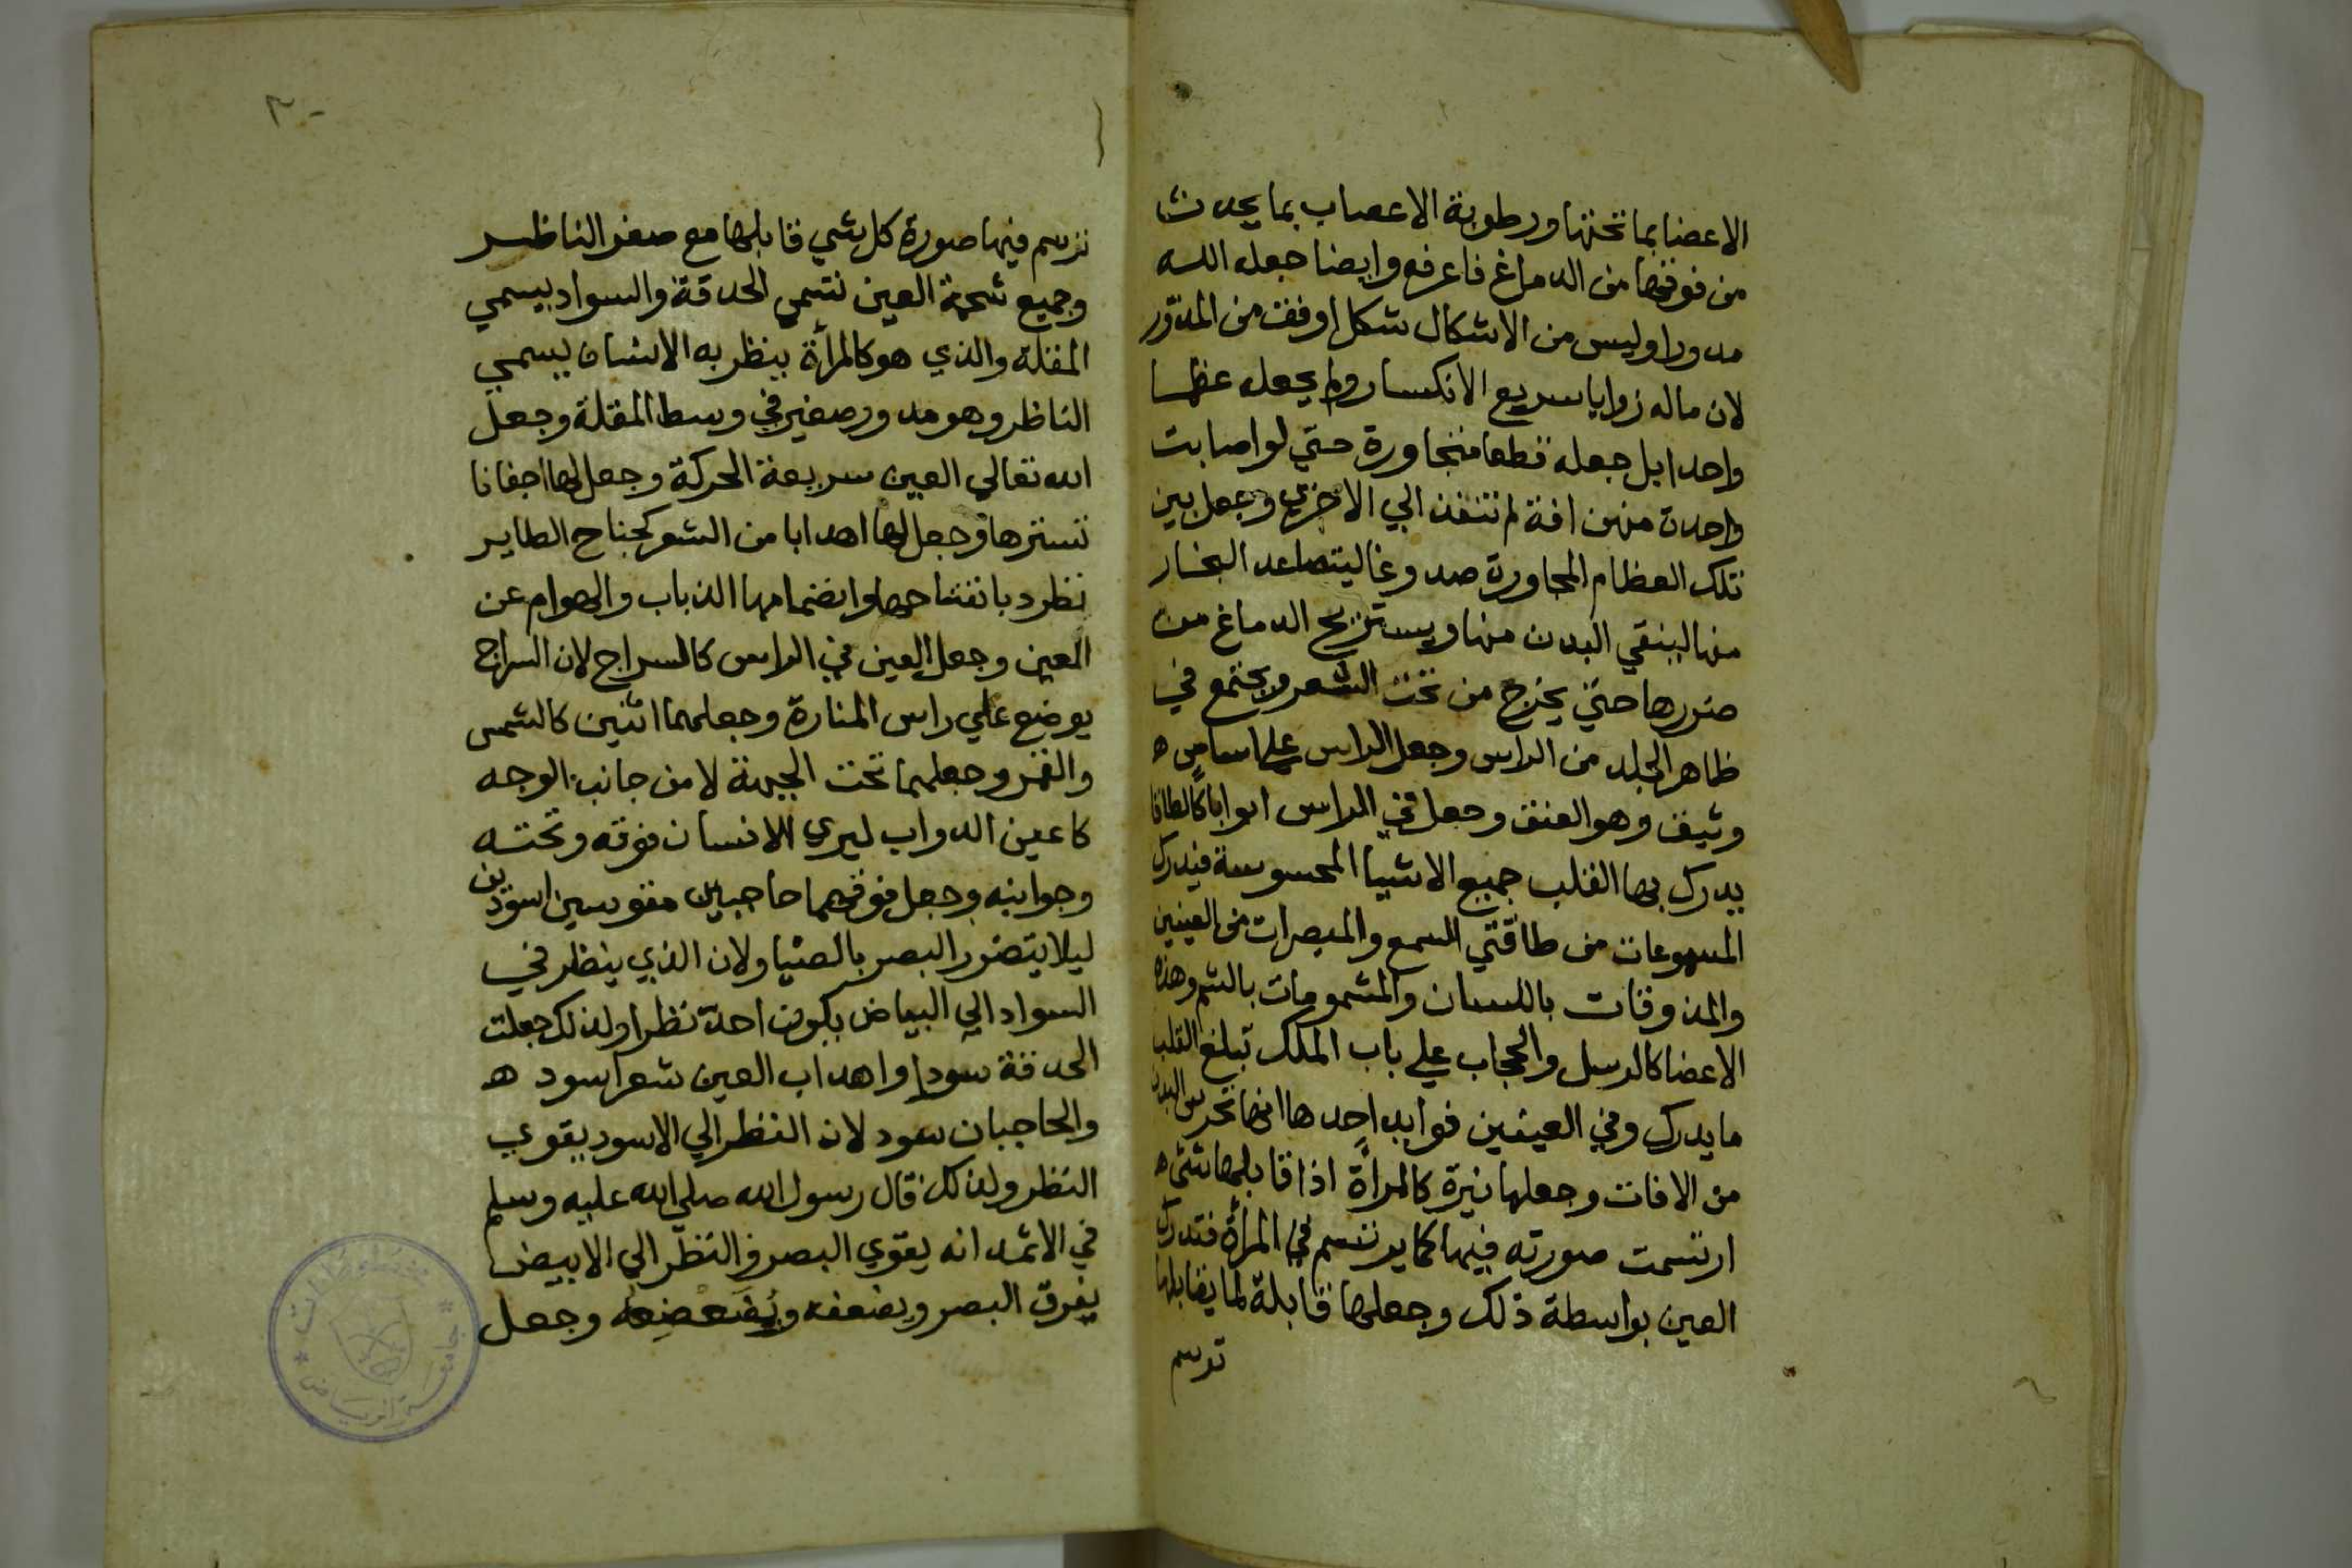 الاعضا بما تحتها ورطوبة الاعصاب بما يحدث
من فوقها من الدماغ فاعرفه وايضا جعله الله
مدورا وليس من الاشكال شكل اوفق من المدوّر
لان ماله زوايا سريع الانكسار ولم يجعله عظما
واحدا بل جعله قطعا متجاورة حتي لو اصابت
واحدة منهن افة لم تنفذ الي الاخري وجعل بين
تلك العظام المجاورة صدوغا ليتصاعد البخار
منها لينقي البدن منها ويستريح الدماغ من
ضررها حتي يخرج من تحت الشعر ويجتمع في
ظاهر الجلد من الراس وجعل الراس علي اساس ه
وثيق وهو العنق وجعل في الراس ابوابا كالطاقا
يدرك بها القلب جميع الاشيا المحسوسة فيدرك
المسموعات من طاقتي السمع والمبصرات من العينين
والمذوقات باللسان والمشمومات بالشم وهذه
الاعضا كالرسل والحجاب علي باب الملك تبلغ القلب
ما يدرك وفي العينين فوايد احدها انها تحرس البدن
من الافات وجعلها نيرة كالمرأة اذا قابلها شئ ه
ارتسمت صورته فيها كما يرتسم في المرأة فتدرك
العين بواسطة ذلك وجعلها قابلة لما يقابلها
ترسم
٣٠
ترسم فيها صورة كل شي قابلها مع صغر الناظر
وجميع شحمة العين تسمي الحدقة والسواد يسمي
المقلة والذي هو كالمرأة ينظر به الانسان يسمي
الناظر وهو مدور صغير في وسط المقلة وجعل
الله تعالي العين سريعة الحركة وجعل لها اجفانا
تسترها وجعل لها اهدابا من الشعر كجناح الطاير
تطرد بانفتاحها وانضمامها الذباب والهوام عن
العين وجعل العين في الراس كالسراج لان السراج
يوضع علي راس المنارة وجعلهما اثنين كالشمس
والقمر وجعلهما تحت الجبهة لا من جانب الوجه
كاعين الدواب ليري الانسان فوقه وتحته
وجوانبه وجعل فوقهما حاجبين مقوسين اسودين
ليلا يتضرر البصر بالضيا ولان الذي ينظر في
السواد الي البياض يكون احدّ نظرا ولذلك جعلت
الحدقة سودا واهداب العين شعرا سود ه
والحاجبان سود لان النظر الي الاسود يقوي
النظر ولذلك قال رسول الله صلي الله عليه وسلم
في الاثمد انه يقوي البصر والنظر الي الابيض
يفرق البصر ويضعفه ويُضَعضِعه وجعل
جامعة الرياض